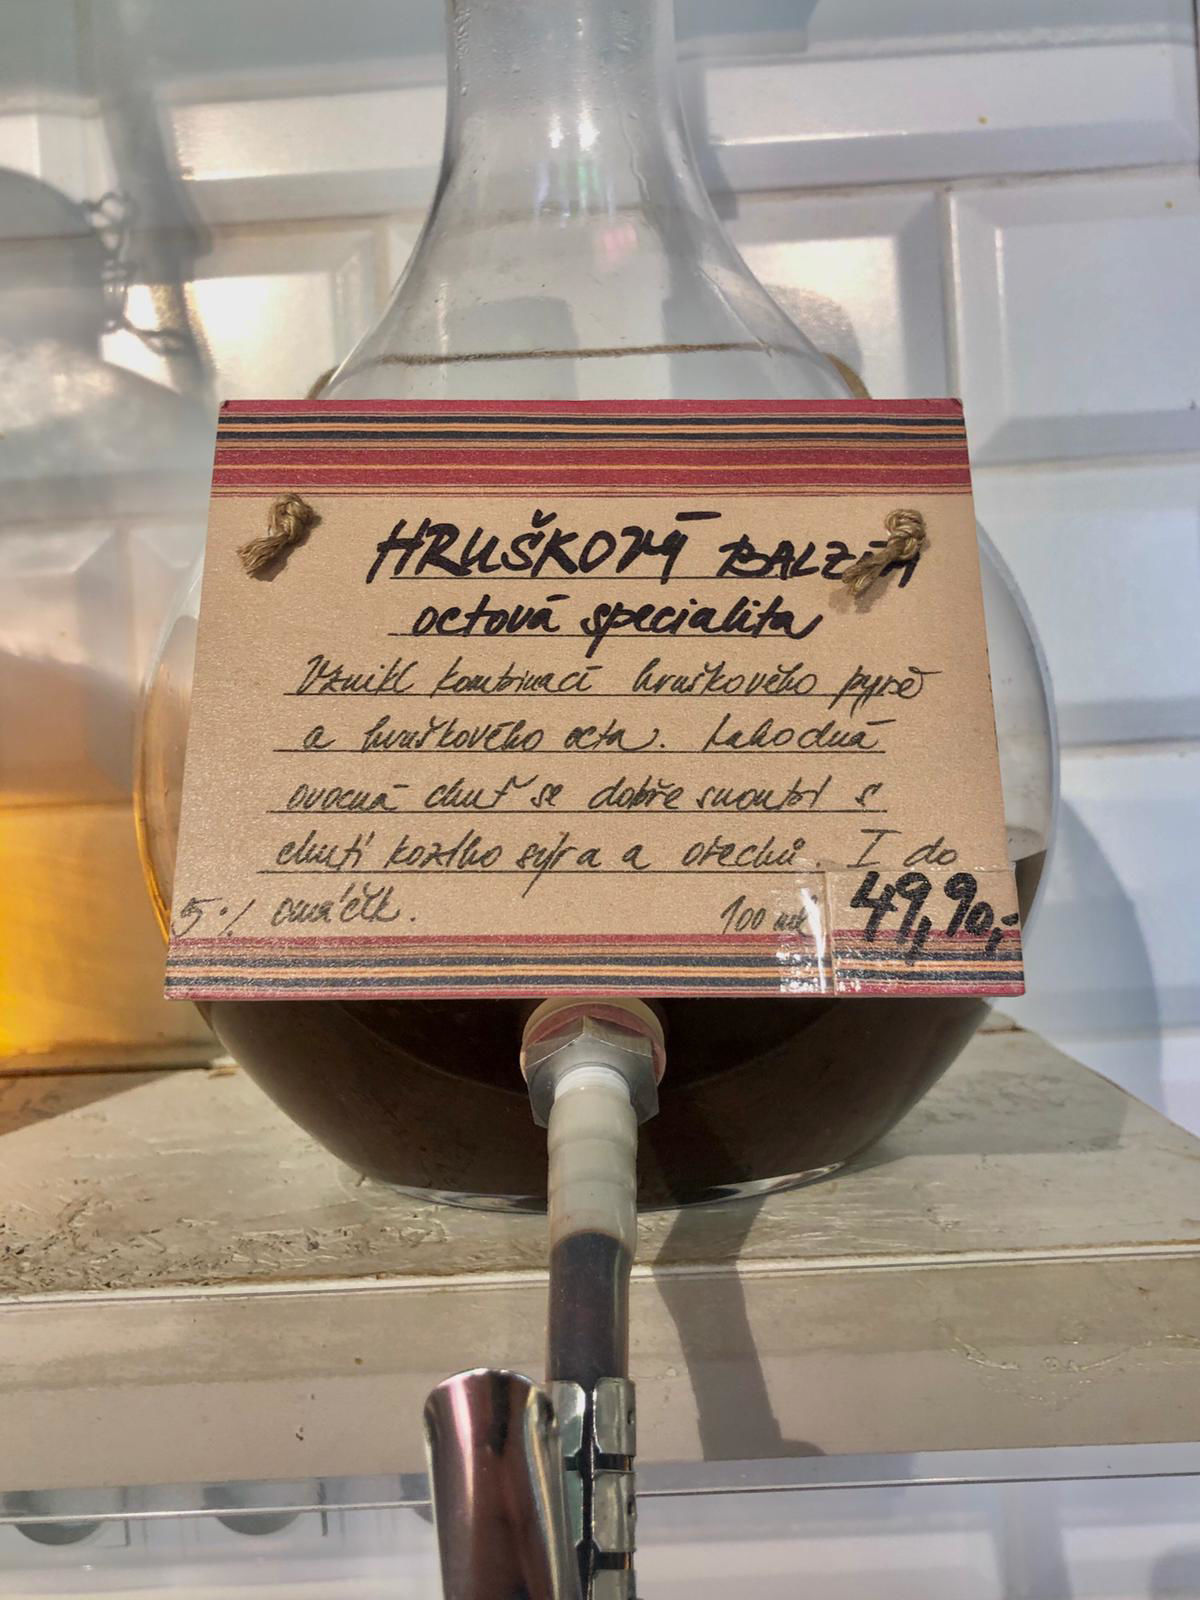 HRUŠKOVÝ BALZÁM
octová specialita
Vznikl kombinací hruškového pyré
a hruškového octa. Lahodná
ovocná chuť se dobře snoubí s
chutí kozího sýra a ořechů. I do
5% omáček. 100 ml 49,90,-